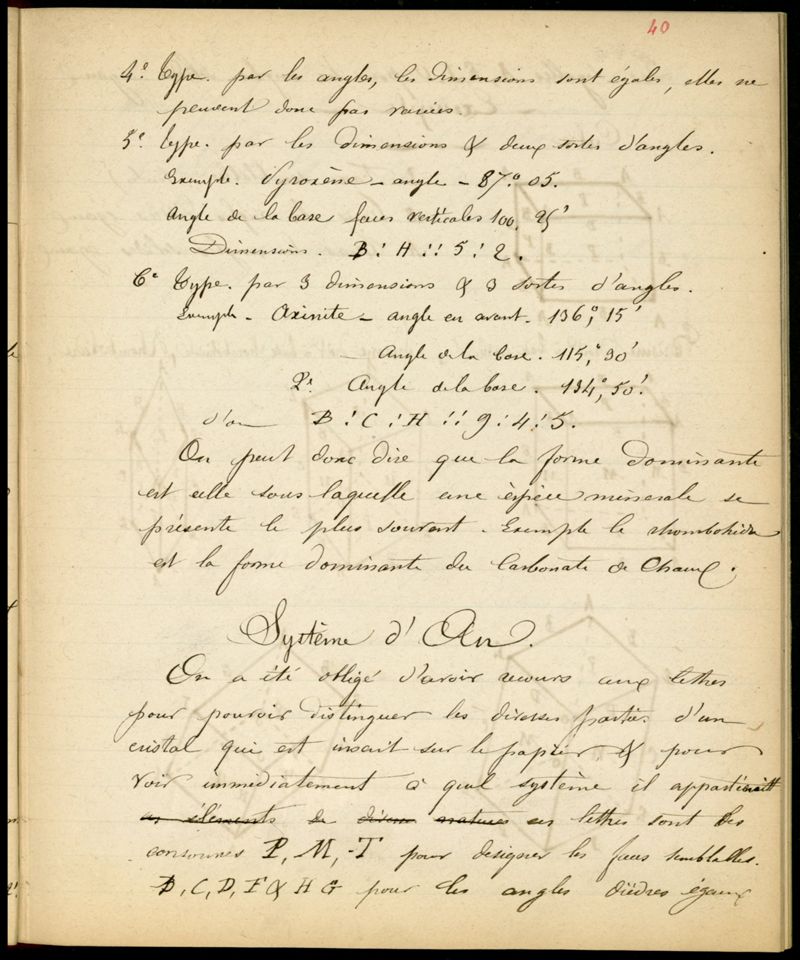 40
4e type. par les angles, les dimensions sont égales, elles ne
peuvent donc pas varier.
5e type. par les dimensions & deux sortes d'angles.
Exemple. Pyroxène – angle – 87,° 05.
Angle de la base faces verticales 100, 25'
Dimensions. B : H :: 5 : 2.
6e type. par 3 dimensions & 3 sortes d'angles.
Exemple – Axinite – angle en avant. 136°, 15'
– Angle de la base. 115,° 30'
2e Angle de la base. 134°, 50'.
d'où B : C : H :: 9 : 4 : 5.
On peut donc dire que la forme dominante
est celle sous laquelle une espèce minérale se
présente le plus souvent. Exemple le rhomboèdre
est la forme dominante du Carbonate de Chaux.
Système d'
On a été obligé d'avoir recours aux lettres
pour pouvoir distinguer les diverses parties d'un
cristal qui est inscrit sur le papier & pour
voir immédiatement à quel système il appartient
éléments de natures ces lettres sont les
consonnes P, M, T pour désigner les faces semblables.
B, C, D, F & H G pour les angles dièdres égaux